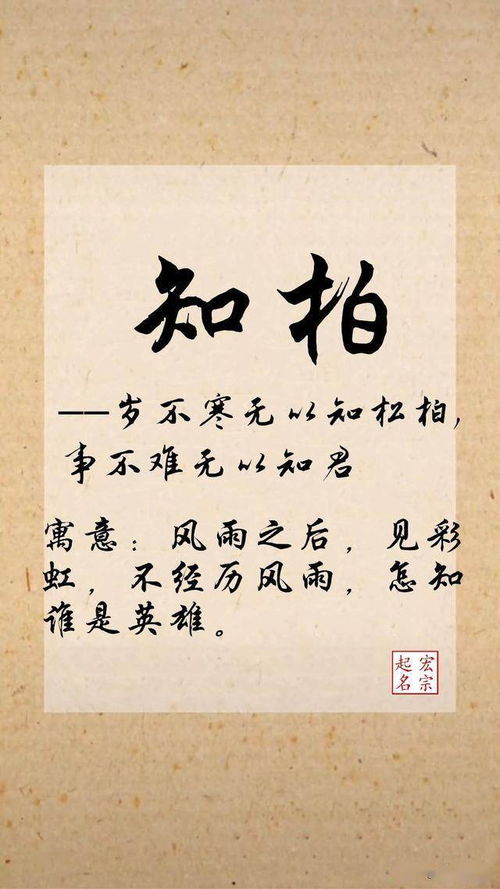 知柏
——岁不寒无以知松柏,
事不难无以知君
寓意:风雨之后,见彩
虹,不经历风雨,怎知
谁是英雄。
宏宗
起名